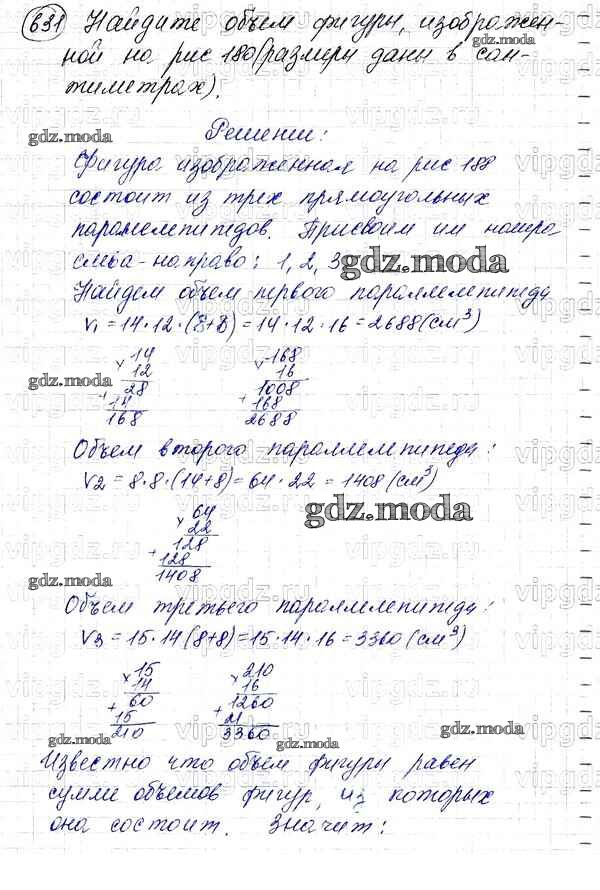 631 Найдите объем фигуры, изображен-
ной на рис 180 (размеры даны в сан-
тиметрах).
gdz.moda
Решении:
Фигура изображенная на рис 188
состоит из трех прямоугольных
параллелепипедов. Присвоим им номера
слева-направо: 1, 2, 3
gdz.moda
Найдем объем первого параллелепипеда
V1 = 14·12·(8+8) = 14·12·16 = 2688 (см³)
14 168
× 12 × 16
gdz.moda
28 1008
+ 14 + 168
168 2688
Объем второго параллелепипеда:
V2 = 8·8·(14+8) = 64·22 = 1408 (см³)
gdz.moda
64
× 22
128
+ 128
1408
gdz.moda
Объем третьего параллелепипеда:
V3 = 15·14(8+8) = 15·14·16 = 3360 (см³)
15 210
× 14 × 16
60 1260
+ 15 + 21
210 3360
gdz.moda gdz.moda
Известно что объем фигуры равен
сумме объемов фигур, из которых
она состоит. Значит:
vipgdz.ru